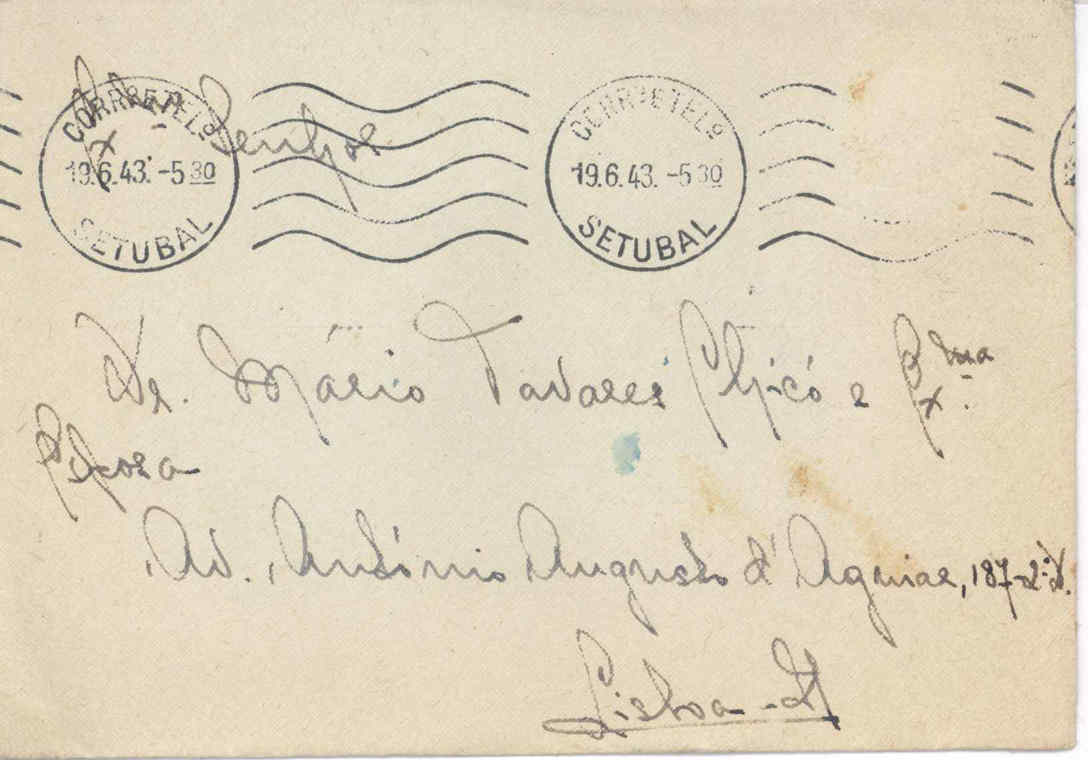 CORR. E TEL.º
19.6.43.-5 30
SETUBAL
CORR. E TEL.º
19.6.43.-5 30
SETUBAL
Exmo Senhor
Dr. Mário Tavares Chicó e Exma
Esposa
Av. António Augusto d'Aguiar, 187-2º D.
Lisboa -